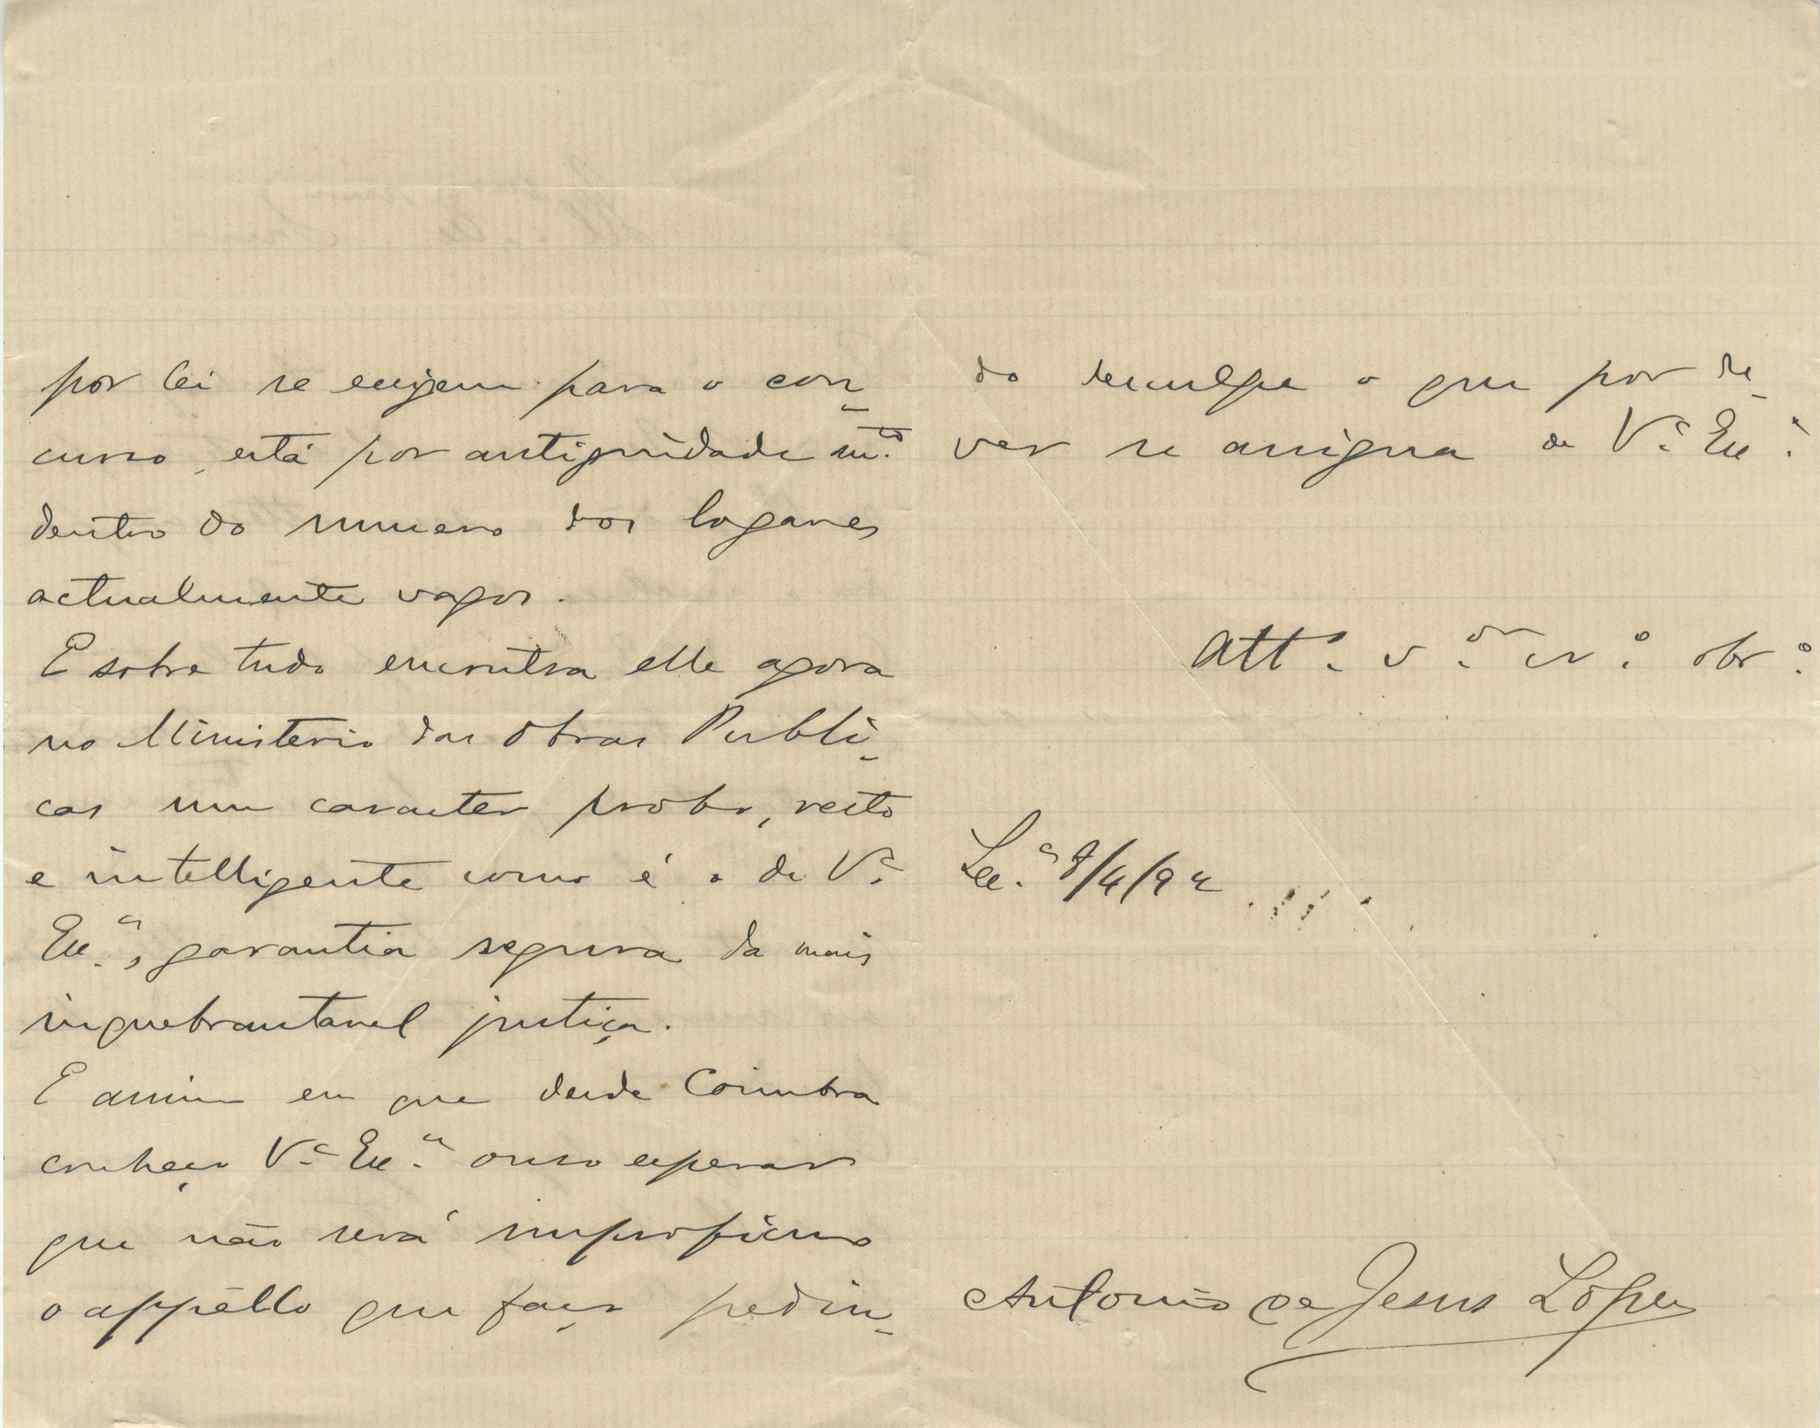 por lei se exigem para o con-
curso, está por antiguidade m.to
dentro do numero dos logares
actualmente vagos.
E sobre tudo encontra elle agora
no Ministerio das Obras Publi-
cas um caracter probo, recto
e intelligente como é o de V.ª
Ex.ª, garantia segura da mais
inquebrantavel justiça.
E assim eu que desde Coimbra
conheço V.ª Ex.ª ouso esperar
que não será improficuo
o appêllo que faço pedin-
do desculpe o que por de-
ver se assigna de V.ª Ex.ª
Att.º v.or cr.º obr.º
8/4/92
Antonio de Jesus Lopes